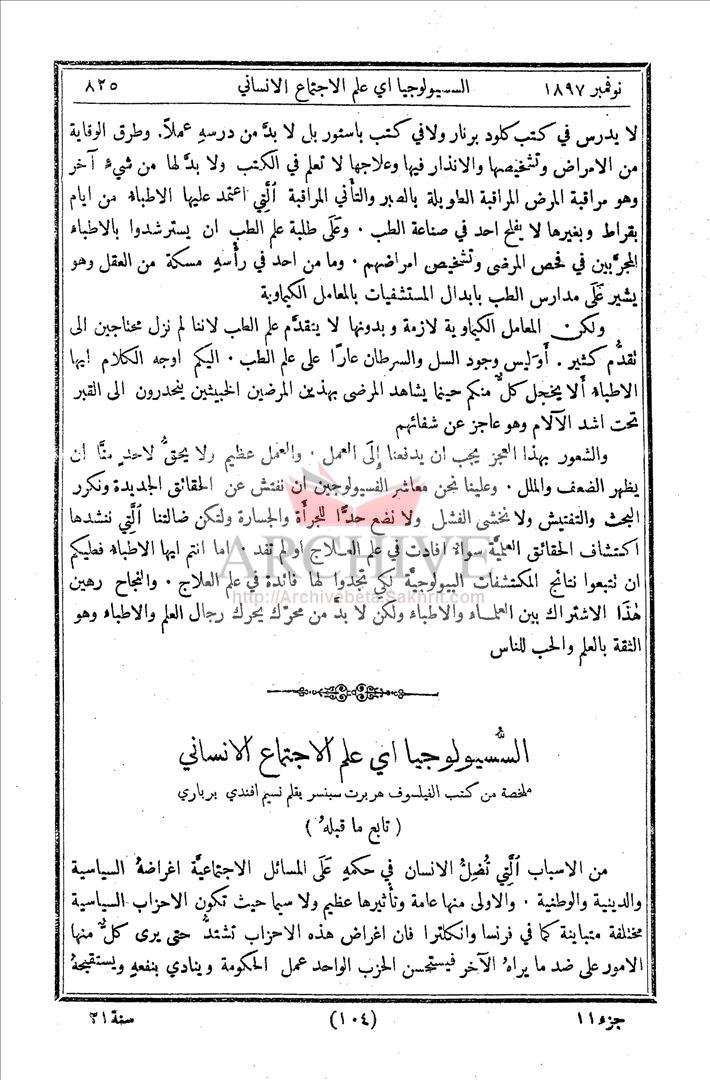 نوفمبر ١٨٩٧ السسيولوجيا اي علم الاجتماع الانساني ٨٢٥
لا يدرس في كتب كلود برنار ولا في كتب باستور بل لا بدَّ من درسهِ عملاً. وطرق الوقاية
من الامراض وتشخيصها والانذار فيها وعلاجها لا تعلم في الكتب ولا بدَّ لها من شيءٍ آخر
وهو مراقبة المرض المراقبة الطويلة بالصبر والتأني المراقبة الَّتي اعتمد عليها الاطباءُ من ايام
بقراط وبغيرها لا يفلح احد في صناعة الطب ٠ وعَلَى طلبة علم الطب ان يسترشدوا بالاطباء
المجرّبين في فحص المرضى وتشخيص امراضهم ٠ وما من احد في رأْسهِ مسكة من العقل وهو
يشير عَلَى مدارس الطب بابدال المستشفيات بالمعامل الكيماوية
ولكن المعامل الكيماوية لازمة وبدونها لا يتقدَّم علم الطب لاننا لم نزل محتاجين الى
تقدُّم كثير . أَوَليس وجود السل والسرطان عارًا على علم الطب ٠ اليكم اوجه الكلام ايها
الاطباءُ أَلا يخجل كلٌّ منكم حينما يشاهد المرضى بهذين المرضين الخبيثين ينحدرون الى القبر
تحت اشد الآلام وهو عاجز عن شفائهم
والشعور بهذا العجز يجب ان يدفعنا إِلَى العمل ٠ والعمل عظيم ولا يحقُّ لاحدٍ منَّا ان
يظهر الضعف والملل ٠ وعلينا نحن معاشر الفسيولوجيين ان نفتش عن الحقائق الجديدة ونكرر
البحث والتفتيش ولا نخشى الفشل ولا نضع حدًّا للجرأَة والجسارة ولتكن ضالتنا الَّتي ننشدها
اكتشاف الحقائق العلميَّة سواءٌ افادت في علم العلاج او لم تفد ٠ اما انتم ايها الاطباءُ فعليكم
ان تتبعوا نتائج المكتشفات البيولوجيَّة لكي تجدوا لها فائدة في علم العلاج ٠ والنجاح رهين
هٰذا الاشتراك بين العلماء والاطباء ولكن لا بدَّ من محرّك يحرك رجال العلم والاطباء وهو
الثقة بالعلم والحب للناس
ARCHIVE
http://Archivebeta.Sakhrit.com
السُّسيولوجيا اي علم الاجتماع الانساني
ملخصة من كتب الفيلسوف هربرت سبنسر بقلم نسيم افندي برباري
( تابع ما قبلهُ )
من الاسباب الَّتي تُضِلُّ الانسان في حكمهِ عَلَى المسائل الاجتماعيَّة اغراضهُ السياسية
والدينية والوطنية ٠ والاولى منها عامة وتأثيرها عظيم ولا سيما حيث تكون الاحزاب السياسية
مختلفة متباينة كما في فرنسا وانكلترا فان اغراض هذه الاحزاب تشتدُّ حتى يرى كلٌّ منها
الامور على ضد ما يراهُ الآخر فيستحسن الحزب الواحد عمل الحكومة وينادي بنفعهِ ويستقبحهُ
جزء ١١ (١٠٤) سنة ٢١